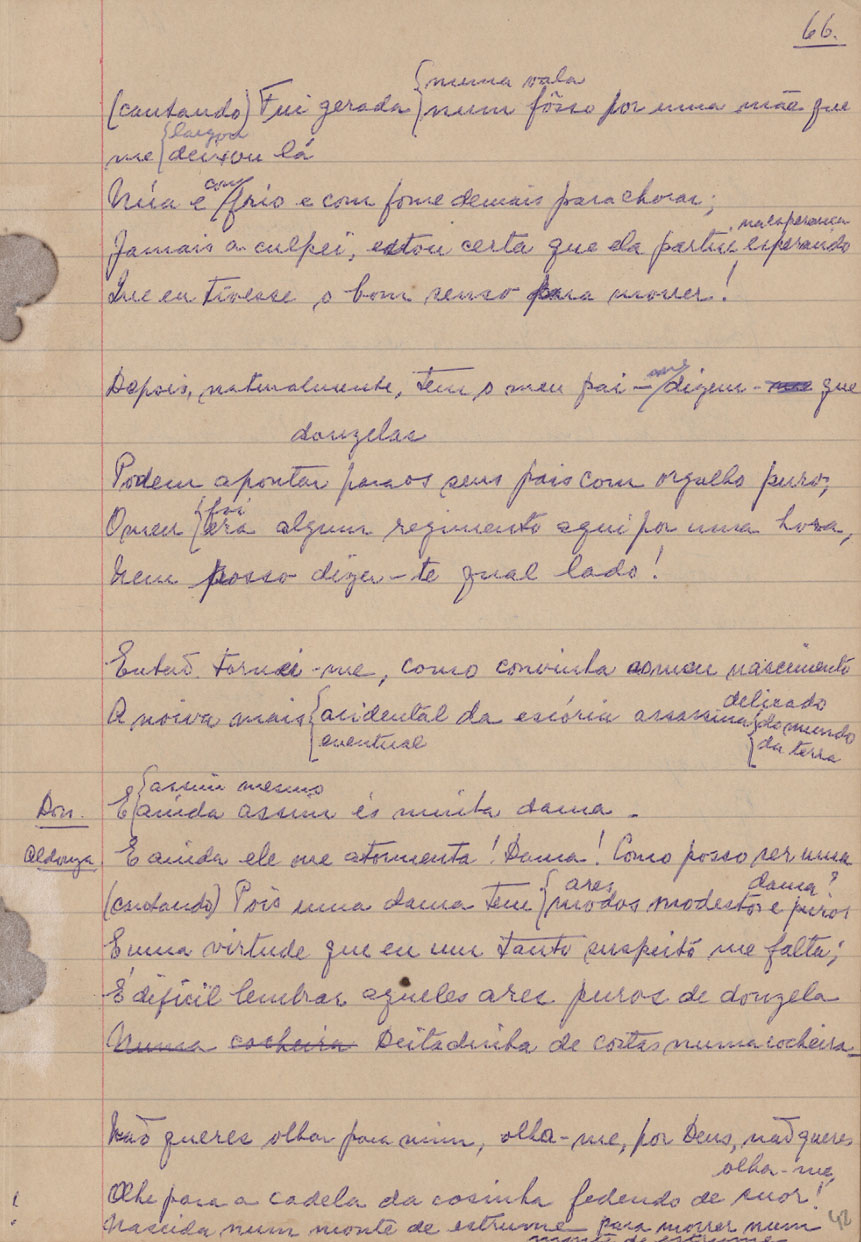 66.
numa vala
(cantando) Fui gerada {num fôsso por uma mãe que
{largou
me {deixou lá
com
Núa e frio e com fome demais para chorar;
na esperança
Jamais a culpei, estou certa que ela partiu esperando
Que eu tivesse o bom senso para morrer!
Depois, naturalmente, tem o meu pai - dizem - que
donzelas
Podem apontar para os seus pais com orgulho puro;
{foi
O meu {era algum regimento aqui por uma hora,
Nem posso dizer-te qual lado!
Então tornei-me, como convinha ao meu nascimento
delicado
A noiva mais {acidental da escória assassina {do mundo
{eventual {da terra
{assim mesmo
Don. E {ainda assim és minha dama.
Aldonza. E ainda ele me atormenta! Dama! Como posso ser uma
{ares dama?
(cantando) Pois uma dama tem {modos modestos e puros
E uma virtude que eu um tanto suspeito me falta;
É difícil lembrar aqueles ares puros de donzela
Numa cocheira Deitadinha de costas numa cocheira_
Não queres olhar para mim, olha-me, por Deus, não queres
olha-me,
! Olhe para a cadela da cosinha fedendo de suor!
Nascida num monte de estrume para morrer num
monte de estrume 42